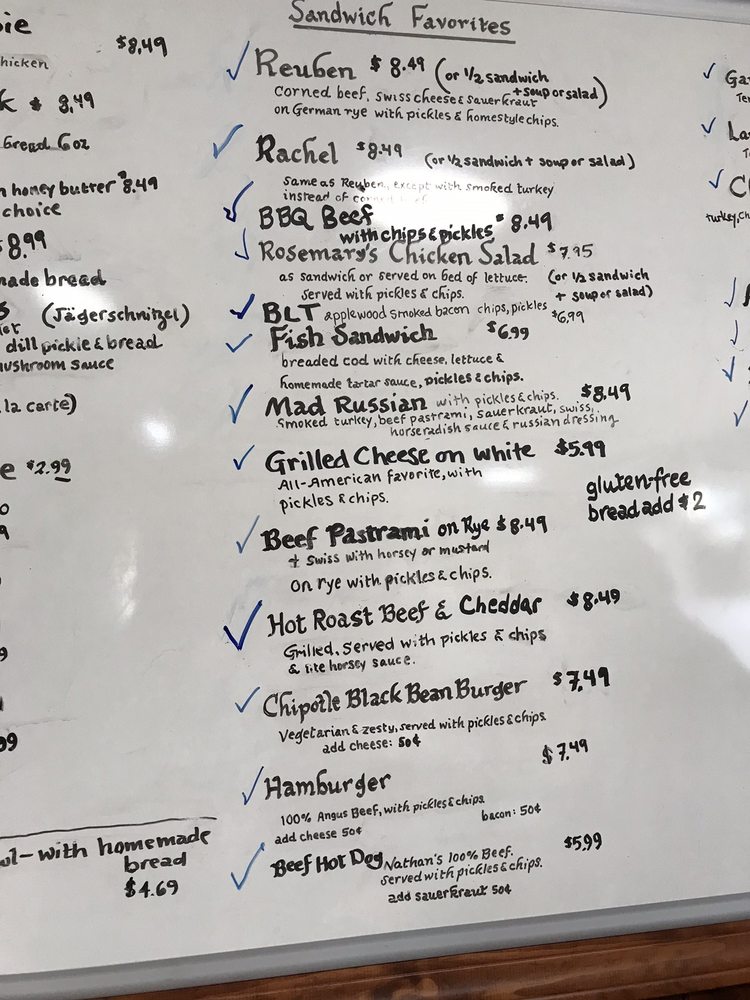 Sandwich Favorites
Reuben $8.49 (or 1/2 sandwich
+ soup or salad)
Corned beef, Swiss cheese & sauerkraut
on German rye with pickles & homestyle chips.
Rachel $8.49 (or 1/2 sandwich + soup or salad)
Same as Reuben, except with smoked turkey
instead of
BBQ Beef
with chips & pickles $8.49
Rosemary's Chicken Salad $7.95
as sandwich or served on bed of lettuce. (or 1/2 sandwich
served with pickles & chips. + soup or salad)
BLT applewood smoked bacon chips, pickles $6.99
Fish Sandwich $6.99
breaded cod with cheese, lettuce &
homemade tartar sauce, pickles & chips.
Mad Russian with pickles & chips. $8.49
smoked turkey, beef pastrami, sauerkraut, swiss,
horseradish sauce & russian dressing
Grilled Cheese on white $5.99
All-American favorite, with
pickles & chips.
gluten-free
bread add $2
Beef Pastrami on Rye $8.49
+ Swiss with horsey or mustard
on rye with pickles & chips.
Hot Roast Beef & Cheddar $8.49
Grilled, served with pickles & chips
& lite horsey sauce.
Chipotle Black Bean Burger $7.49
Vegetarian & zesty, served with pickles & chips.
add cheese: 50¢
Hamburger $7.49
100% Angus Beef, with pickles & chips
add cheese 50¢ bacon: 50¢
Beef Hot Dog Nathan's 100% Beef. $5.99
served with pickles & chips.
add sauerkraut 50¢
$8.49
hicken
$8.49
bread 6oz
honey butter $8.49
choice
$8.99
made bread
(Jägerschnitzel)
dill pickle & bread
mushroom sauce
la carte)
$2.99
with homemade
bread
$4.69